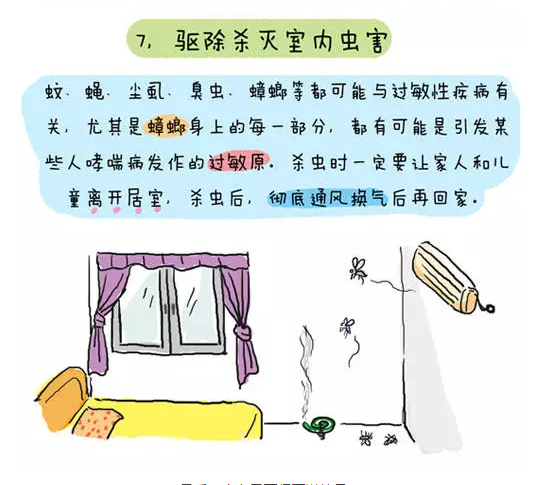 7, 驱除杀灭室内虫害
蚊、蝇、尘虱、臭虫、蟑螂等都可能与过敏性疾病有
关，尤其是蟑螂身上的每一部分，都有可能是引发某
些人哮喘病发作的过敏原。杀虫时一定要让家人和儿
童离开居室，杀虫后，彻底通风换气后再回家。